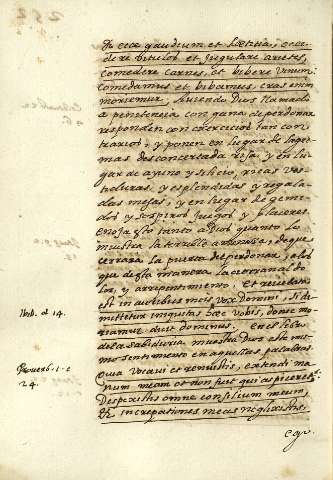 Et ecce gaudium et Lætitia, occi
dere vitulos et Jugulare arietes,
comedere carnes, et bibere vinum:
comedamus et bibamus, cras enim
moriemur. Auiendo Dios llamado
a penitencia con gana de perdonar
responden con exercicios tan con
trarios, y ponen en lugar de lagri
mas desconcertada risa, y en lu
gar de ayuno y silicio, ricas ves
tiduras, y esplendidas y regala
das mesas, y en lugar de gemi
dos y sospiros Juegos y placeres
enoja esto tanto a Dios quanto lo
muestra la terrible amenaza, de que
cerrara la puerta del perdonar, a los
que desta manera la cierran al do
lor, y arrepentimiento. Et reuelata
est in auribus mois vox Domini, si di
mittetur iniquitas haec vobis, donec mo
riamini dicit dominus. En el libro
de la sabiduria muestra Dios este mis
mo sentimiento en aquellas palabras
Quia vocaui et renuistis, extendi ma
num meam et non fuit qui aspiceret.
Despexistis omne consilium meum,
et increpationes meas neglexistis.
ego.
Ibid. a 14.
Prouerb. 1. c
24.